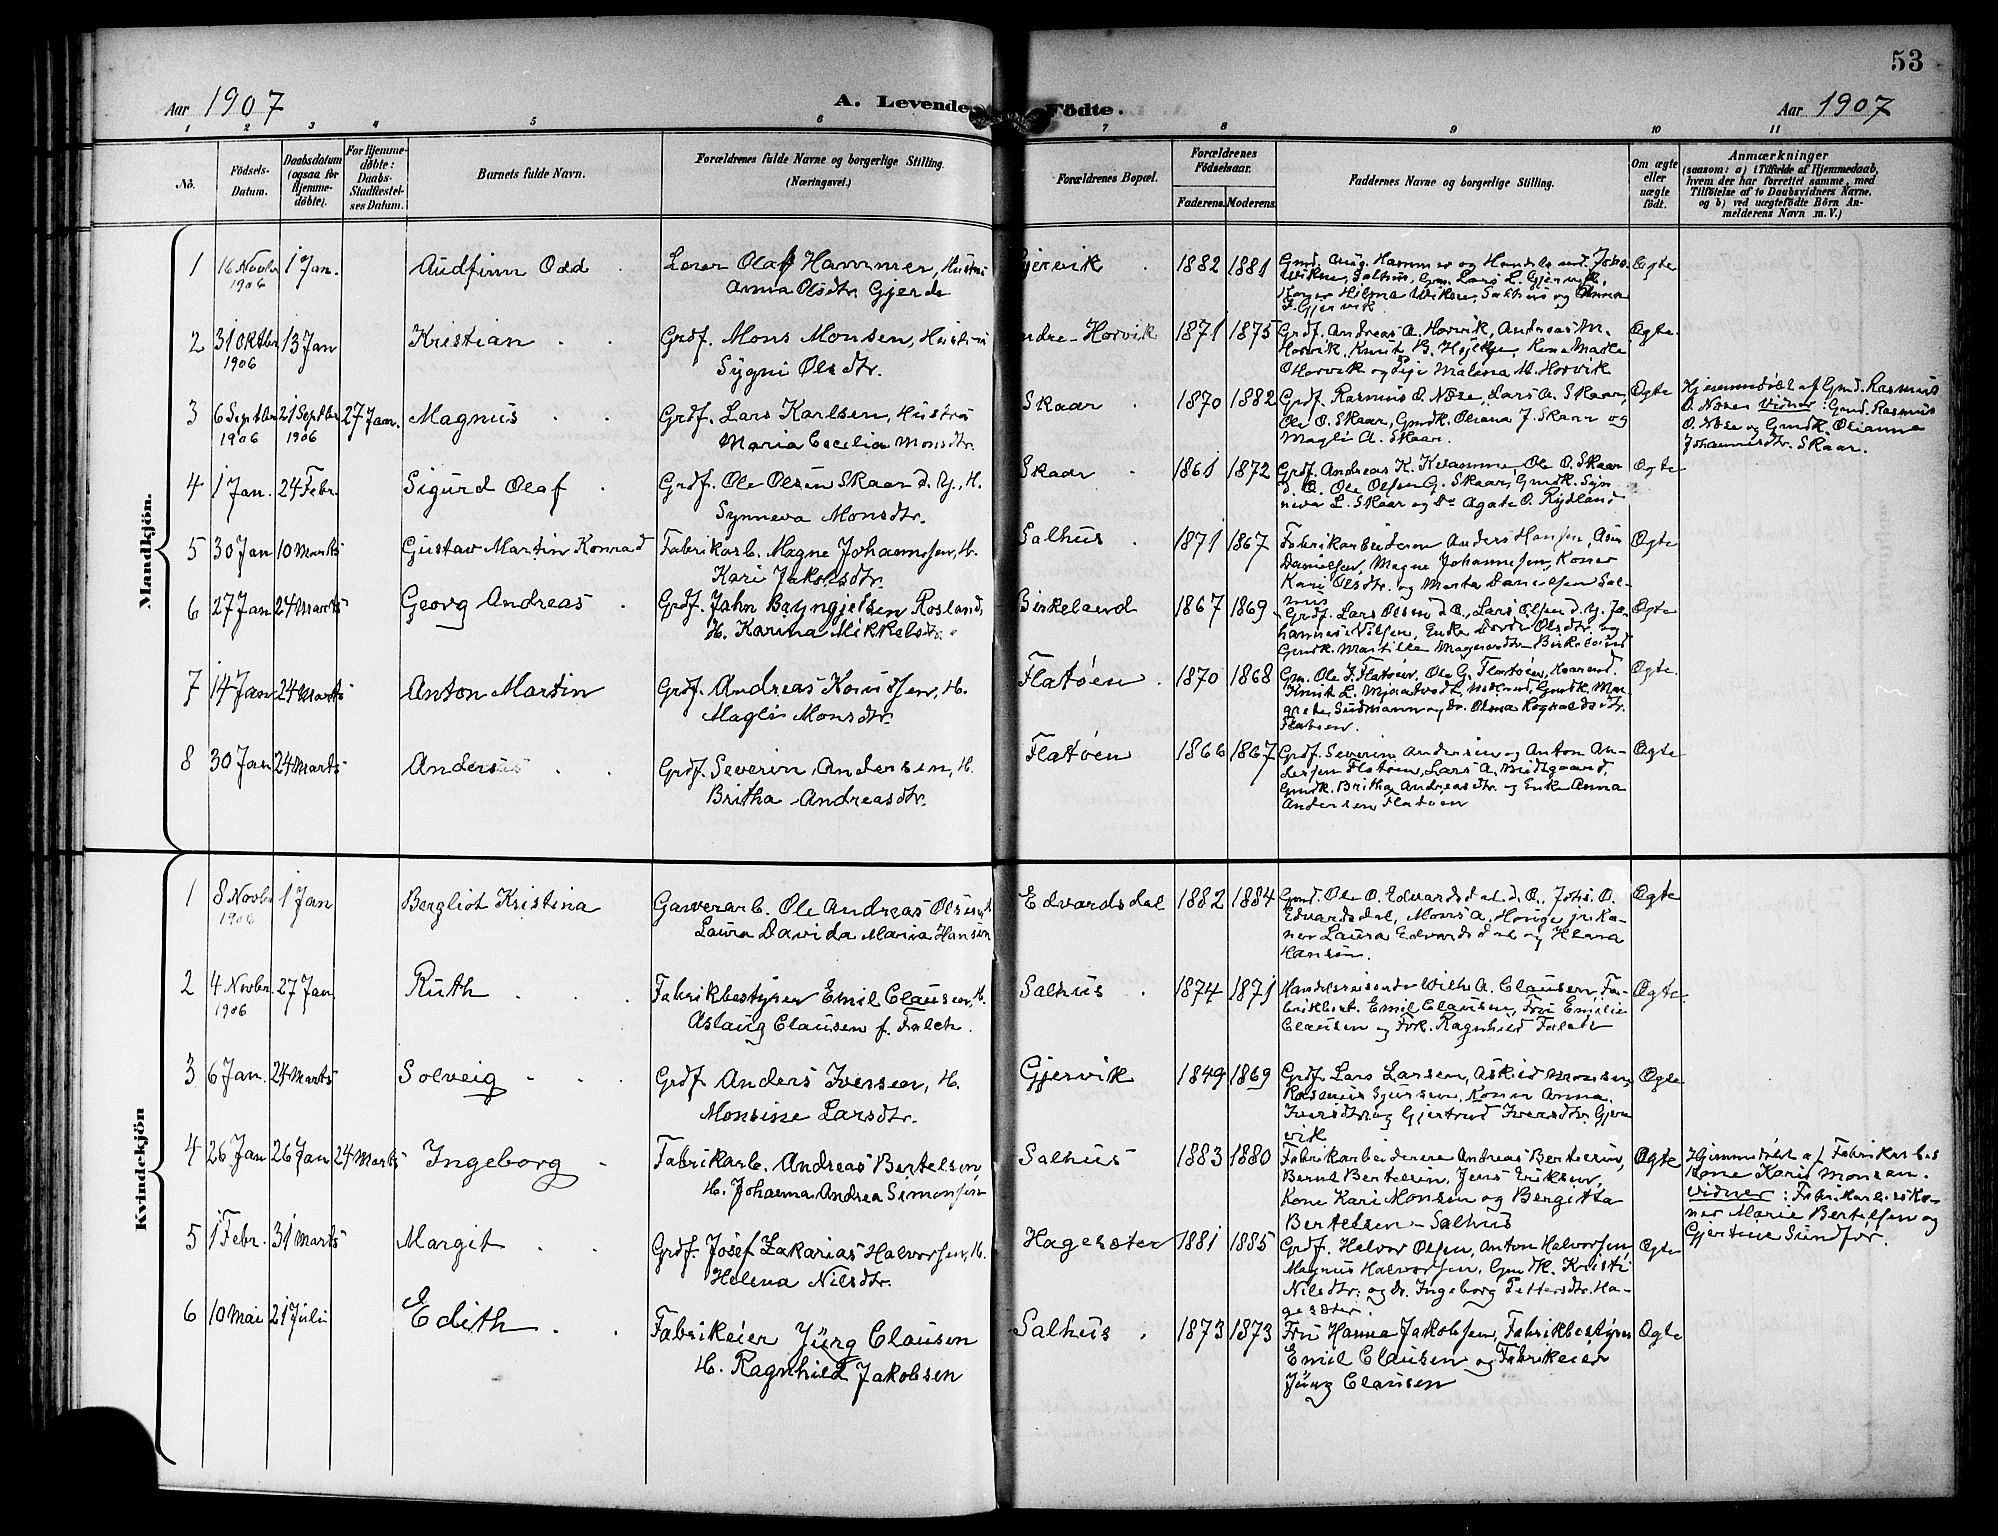 53
Aar 1907
A. Levende Födte.
Aar 1907
1 2 3 4 5 6 7 8 9 10 11
No.
Födsels-
Datum.
Daabsdatum
(ogsaa for
Hjemme-
døbte).
For Hjemme-
døbte:
Daabs-
Stadfæstel-
ses Datum.
Barnets fulde Navn.
Forældrenes fulde Navne og borgerlige Stilling.
(Næringsvei.)
Forældrenes Bopæl.
Forældrenes
Födselsaar.
Faderens. Moderens.
Faddernes Navne og borgerlige Stilling.
Om ægte
eller
uægte
født.
Anmærkninger
(saasom: a) i Tilfælde af Hjemmedaab,
hvem der har forrettet samme, med
Tilföielse af to Daabsvidners Navne,
og b) ved uægtefödte Börn An-
melderens Navn m. V.)
Mandkjön.
1 16 Novbr 1906 1 Jan. Audfinn Odd
Lærer Olaf Hammer, Hustru
Anna Olsdtr. Gjerde
Gjervik 1882 1881
Gmd. Aug. Hammer og Handelsmd. Johs.
Wiken, Salhus, Gm. Lars L. Gjervik,
Hilma Wiken, Salhus og Anna
Gjervik
Ægte
2 31 Oktbr 1906 13 Jan Kristian
Grdf. Mons Monsen, Hustru
Sygni Olsdtr.
Indre-Horvik 1871 1875
Grdf. Andreas A. Horvik, Andreas M.
Horvik, Knut B.
Horvik og Pige Malena M. Horvik
Ægte
3 6 Septbr 1906 21 Septbr 1906 27 Jan. Magnus
Grdf. Lars Karlsen, Hustru
Maria Cecilia Monsdtr.
Skaar 1870 1882
Grdf. Rasmus O. Næse, Lars A. Skaar,
Ole O. Skaar, Gmdk. Oliana J. Skaar og
Magli A. Skaar.
Ægte
Hjemmedøbt af Gmd. Rasmus
O. Næse. Vidner: Gmd. Rasmus
O. Næse og Gmdk. Olianna
Johannesdtr. Skaar.
4 1 Jan. 24 Febr. Sigurd Olaf
Grdf. Ole Olsen Skaar d. y., H.
Synneva Monsdtr.
Skaar 1861 1872
Grdf. Andreas K. Kvamme, Ole O. Skaar
d. Æ. Ole Olsen G. Skaar, Gmdk. Syn-
neva L. Skaar og Do Agate O. Rydland
Ægte
5 30 Jan 10 Marts Gustav Martin Konrad
Fabrikarb. Magne Johannesen, H.
Kari Jakobsdtr.
Salhus 1871 1867
Fabrikarbeiderne Anders Hansen,
Danielsen, Magne Johannesen, Koner
Kari Olsdtr. og Marta Danielsen Sal-
hus
Ægte
6 27 Jan 24 Marts Georg Andreas
Grdf. Jahn Brynjelsen Rosland,
H. Karina Mikkelsdtr.
Birkeland 1867 1869
Grdf. Lars Olsen d. Æ., Lars Olsen d. y. Jo-
hannes Nilsen, Enke Olsdtr. og
Gmdk. Magnusdtr. Birkeland
Ægte
7 14 Jan 24 Marts Anton Martin
Grdf. Andreas Knudsen, H.
Magli Monsdtr.
Flatøen 1870 1868
Gm. Ole J. Flatøen, Ole G. Flatøen,
Knut L. Mjaatvedt, Gmdk. Mar-
grete Sudmann og Do. Olina Rognaldsdtr.
Flatøen.
Ægte
8 30 Jan 24 Marts Anders
Grdf. Severin Andersen, H.
Britha Andreasdtr.
Flatøen 1866 1867
Grdf. Severin Andersen og Anton An-
dersen Flatøen, Lars A. Midtgaard,
Gmdk. Britha Andreasdtr. og Enke Anna
Andersen Flatøen
Ægte
Kvindekjön
1 8 Novbr 1906 1 Jan Bergliot Kristina
Garverarb. Ole Andreas Olsen, H.
Laura Davida Maria Hansen
Edvardsdal 1882 1884
Gmd. Ole O. Edvardsdal d. Æ., Johs. O.
Edvardsdal, Mons A. Horvige jr. Ko-
ner Laura Edvardsdal og Klara
Hansen.
Ægte
2 4 Novbr. 1906 27 Jan Ruth
Fabrikbestyrer Emil Clausen, H.
Aslaug Clausen f. Falch.
Salhus 1874 1871
Handelsreisende Wilh. A. Clausen, Fa-
brikbest. Emil Clausen, Fru Emilie
Clausen og Frk. Ragnhild Falch
Ægte
3 6 Jan. 24 Marts Solveig
Grdf. Anders Iversen, H.
Monsine Larsdtr.
Gjervik 1849 1869
Grdf. Lars Larsen, Askild Monsen,
Rasmus Sjursen, Koner Anna
Iversdtr og Gjertrud Iversdtr. Gjer-
vik
Ægte
4 26 Jan 26 Jan 24 Marts Ingeborg
Fabrikarb. Andreas Bertelsen
H. Johanna Andrea Simonsen
Salhus 1883 1880
Fabrikarbeiderne Andreas Bertelsen,
Bernt Bertelsen, Jens Eriksen,
Kone Kari Monsen og Bergitta
Bertelsen - Salhus
Ægte
Hjemmedøbt af Fabrikarbs
Kone Karis Monsen.
Vidner: Fabrikarb.sko-
ner Marie Bertelsen og
Gjertine Sundfør.
5 1 Febr. 31 Marts Margit
Grdf. Josef Zakarias Halvorsen, H.
Helena Nilsdtr.
Hagesæter 1881 1885
Grdf. Helvor Olsen, Anton Halvorsen,
Magnus Halvorsen, Gmdk. Kristi
Nilsdtr. og Do. Ingeborg Pettersdtr. Ha-
gesæter.
Ægte
6 10 Mai 21 Juli Edith
Fabrikeier Jürg Clausen
H. Ragnhild Jakobsen
Salhus 1873 1873
Fru Hanna Jakobsen, Fabrikbestyrer
Emil Clausen og Fabrikeier
Jürg Clausen
Ægte